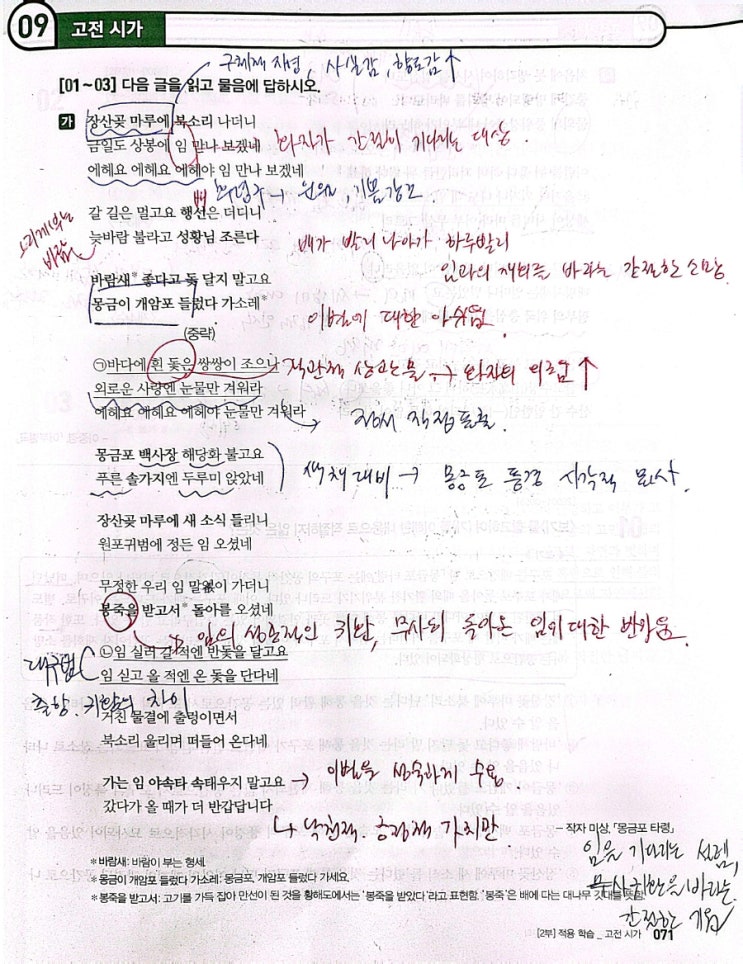 09 고전 시가
구체적 지명, 사실감, 향토감↑
[01~03] 다음 글을 읽고 물음에 답하시오.
가 장산곶 마루에 북소리 나더니
금일도 상봉에 임 만나 보겠네
화자가 간절히 기다리는 대상.
에헤요 에헤요 에헤야 임 만나 보겠네
배 후렴구 → 운율, 기쁨강조
갈 길은 멀고요 행선은 더디니
늦바람 불라고 성황님 조른다
바람
배가 빨리 나아가 하루빨리
임과의 재회를 바라는 간절한 소망.
바람새* 좋다고 돛 달지 말고요
몽금이 개암포 들렀다 가소레*
이별에 대한 아쉬움.
(중략)
㉠바다에 흰 돛은 쌍쌍이 조으나
객관적 상관물 → 화자의 외로움↑
외로운 사랑엔 눈물만 겨워라
에헤요 에헤요 에헤야 눈물만 겨워라
정서 직접 표출.
몽금포 백사장 해당화 붉고요
푸른 솔가지엔 두루미 앉았네
색채대비 → 몽금포 풍경 시각적 묘사.
장산곶 마루에 새 소식 들리니
원포귀범에 정든 임 오셨네
무정한 우리 임 말없이 가더니
봉죽을 받고서* 돌아를 오셨네
임의 성공적인 귀환, 무사히 돌아온 임에 대한 반가움.
대구법
㉡임 실러 갈 적엔 반돛을 달고요
임 싣고 올 적엔 온 돛을 단다네
출항, 귀항의 차이
거친 물결에 출렁이면서
북소리 울리며 떠들어 온다네
가는 임 야속타 속태우지 말고요
→ 이별을 성숙하게 수용
갔다가 올 때가 더 반갑답니다
↳ 낙천적, 긍정적 가치관.
- 작자 미상, 「몽금포 타령」
임을 기다리는 설렘,
무사귀환을 바라는
간절한 기원
* 바람새: 바람이 부는 형세.
* 몽금이 개암포 들렀다 가소레: 몽금포, 개암포 들렀다 가세요.
* 봉죽을 받고서: 고기를 가득 잡아 만선이 된 것을 황해도에서는 '봉죽을 받았다'라고 표현함. '봉죽'은 배에 다는 대나무 깃대를 뜻함.
[2부] 적용 학습 _ 고전 시가 071